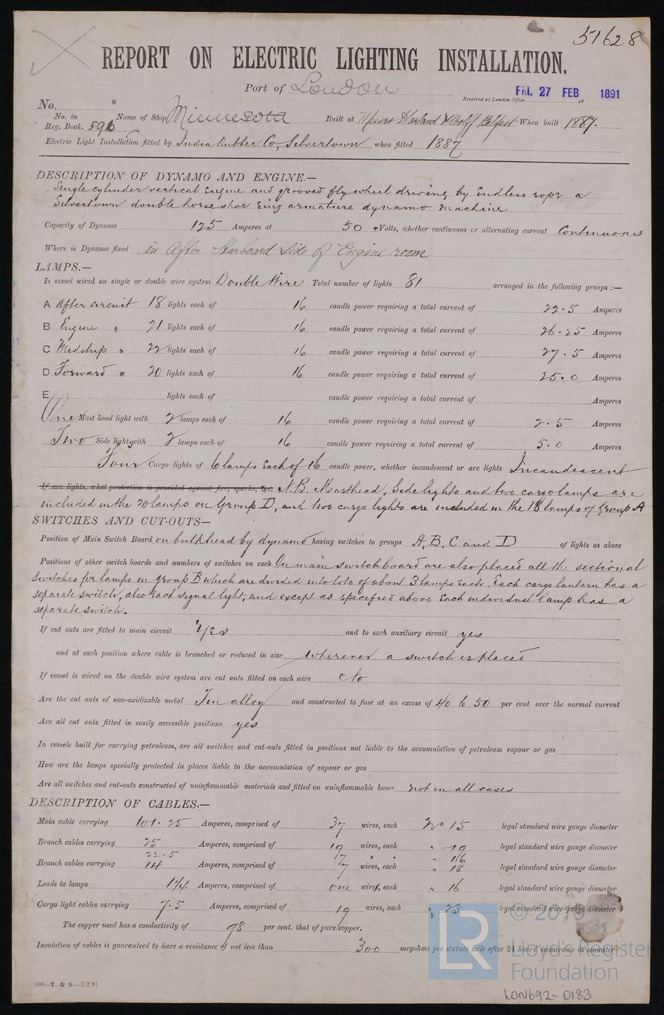 51628
REPORT ON ELECTRIC LIGHTING INSTALLATION.
Port of London
Received at London Office FRI. 27 FEB 1891
No.
No. in Reg. Book. 592 Name of Ship Minnesota Built at Messrs Harland & Wolff Belfast When built 1887.
Electric Light Installation fitted by India Rubber Co, Silvertown when fitted 1887
DESCRIPTION OF DYNAMO AND ENGINE.—
Single cylinder vertical Engine and grooved flywheel driving by Endless rope a
Silvertown double horse shoe ring armature dynamo machine
Capacity of Dynamo 125 Amperes at 50 Volts, whether continuous or alternating current Continuous
Where is Dynamo fixed in After Starboard Side of Engine room
LAMPS.—
Is vessel wired on single or double wire system Double Wire Total number of lights 81 arranged in the following groups :—
A After circuit 18 lights each of 16 candle power requiring a total current of 22.5 Amperes
B Engine " 21 lights each of 16 candle power requiring a total current of 26.25 Amperes
C Midship " 22 lights each of 16 candle power requiring a total current of 27.5 Amperes
D Forward " 20 lights each of 16 candle power requiring a total current of 25.0 Amperes
E lights each of candle power requiring a total current of Amperes
One Mast head light with 2 lamps each of 16 candle power requiring a total current of 2.5 Amperes
Two Side lights with 2 lamps each of 16 candle power requiring a total current of 5.0 Amperes
Four Cargo lights of 6 lamps Each of 16 candle power, whether incandescent or arc lights Incandescent
If arc lights, what protection is provided against fire, sparks, &c. N.B. Masthead, Sidelights and two cargo lamps are
included in the 20 lamps on Group D, and two cargo lights are included in the 18 lamps of Group A
SWITCHES AND CUT-OUTS—
Position of Main Switch Board on bulkhead by dynamo having switches to groups A, B, C and D of lights as above
Positions of other switch boards and numbers of switches on each On main switchboard are also placed all the sectional
switches for lamps in group B which are divided into lots of about 3 lamps each. Each cargo lantern has a
separate switch, also each signal light, and except as specified above Each individual lamp has a
separate switch.
If cut outs are fitted to main circuit Yes and to each auxiliary circuit yes
and at each position where cable is branched or reduced in size wherever a switch is placed
If vessel is wired on the double wire system are cut outs fitted on each wire No
Are the cut outs of non-oxidizable metal Tin alloy and constructed to fuse at an excess of 40 to 50 per cent over the normal current
Are all cut outs fitted in easily accessible positions yes
In vessels built for carrying petroleum, are all switches and cut-outs fitted in positions not liable to the accumulation of petroleum vapour or gas
How are the lamps specially protected in places liable to the accumulation of vapour or gas
Are all switches and cut-outs constructed of uninflammable materials and fitted on uninflammable bases not in all cases
DESCRIPTION OF CABLES.—
Main cable carrying 101.25 Amperes, comprised of 37 wires, each No 15 legal standard wire gauge diameter
Branch cables carrying 25 Amperes, comprised of 19 wires, each " 19 legal standard wire gauge diameter
22.5 " 16
Branch cables carrying 14 Amperes, comprised of 7 wires, each " 18 legal standard wire gauge diameter
Leads to lamps 1¼ Amperes, comprised of one wire, each " 16 legal standard wire gauge diameter
Cargo light cables carrying 7.5 Amperes, comprised of 19 wires, each " 23 legal standard wire gauge diameter
The copper used has a conductivity of 98 per cent. that of pure copper.
Insulation of cables is guaranteed to have a resistance of not less than 300 megohms per statute mile after 24 hours' immersion in seawater
Lloyd's Register
Foundation
LR
LON692-0183